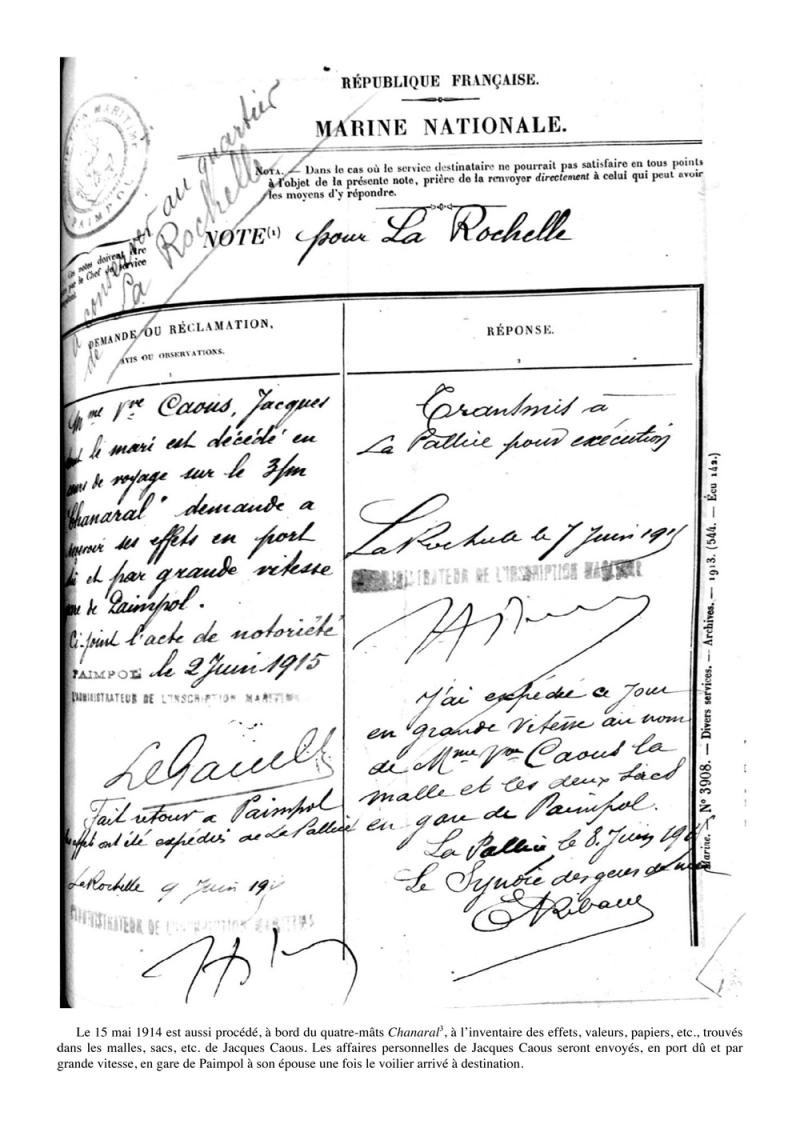 RÉPUBLIQUE FRANÇAISE.
MARINE NATIONALE.
NOTA. — Dans le cas où le service destinataire ne pourrait pas satisfaire en tous points
à l'objet de la présente note, prière de la renvoyer directement à celui qui peut avoir
les moyens d'y répondre.
MARITIME
PAIMPOL
a conserver au quartier
de La Rochelle
NOTE(1) pour La Rochelle
notes doivent être
par le Chef de service
DEMANDE OU RÉCLAMATION,
AVIS OU OBSERVATIONS.
1
Mme Vve Caous, Jacques
le mari est décédé en
cours de voyage sur le 3/m
"Chanaral" demande a
recevoir ses effets en port
dû et par grande vitesse
gare de Paimpol.
Ci-joint l'acte de notoriété
PAIMPOL le 2 Juin 1915
L'ADMINISTRATEUR DE L'INSCRIPTION MARITIME
Fait retour a Paimpol
effets ont été expédiés de La Pallice
La Rochelle 9 Juin
ADMINISTRATEUR DE L'INSCRIPTION MARITIME
RÉPONSE.
2
Transmis à
La Pallice pour exécution
La Rochelle le 7 Juin 1915
ADMINISTRATEUR DE L'INSCRIPTION MARITIME
J'ai expédié ce Jour
en grande vitesse au nom
de Mme Vve Caous la
malle et les deux sacs
en gare de Paimpol.
La Pallice le 8 Juin
Le Syndic des gens de mer
Marine. — N° 3908. — Divers services. — Archives. — 1913. (544. — Écu 142.)
Le 15 mai 1914 est aussi procédé, à bord du quatre-mâts Chanaral3, à l'inventaire des effets, valeurs, papiers, etc., trouvés
dans les malles, sacs, etc. de Jacques Caous. Les affaires personnelles de Jacques Caous seront envoyés, en port dû et par
grande vitesse, en gare de Paimpol à son épouse une fois le voilier arrivé à destination.